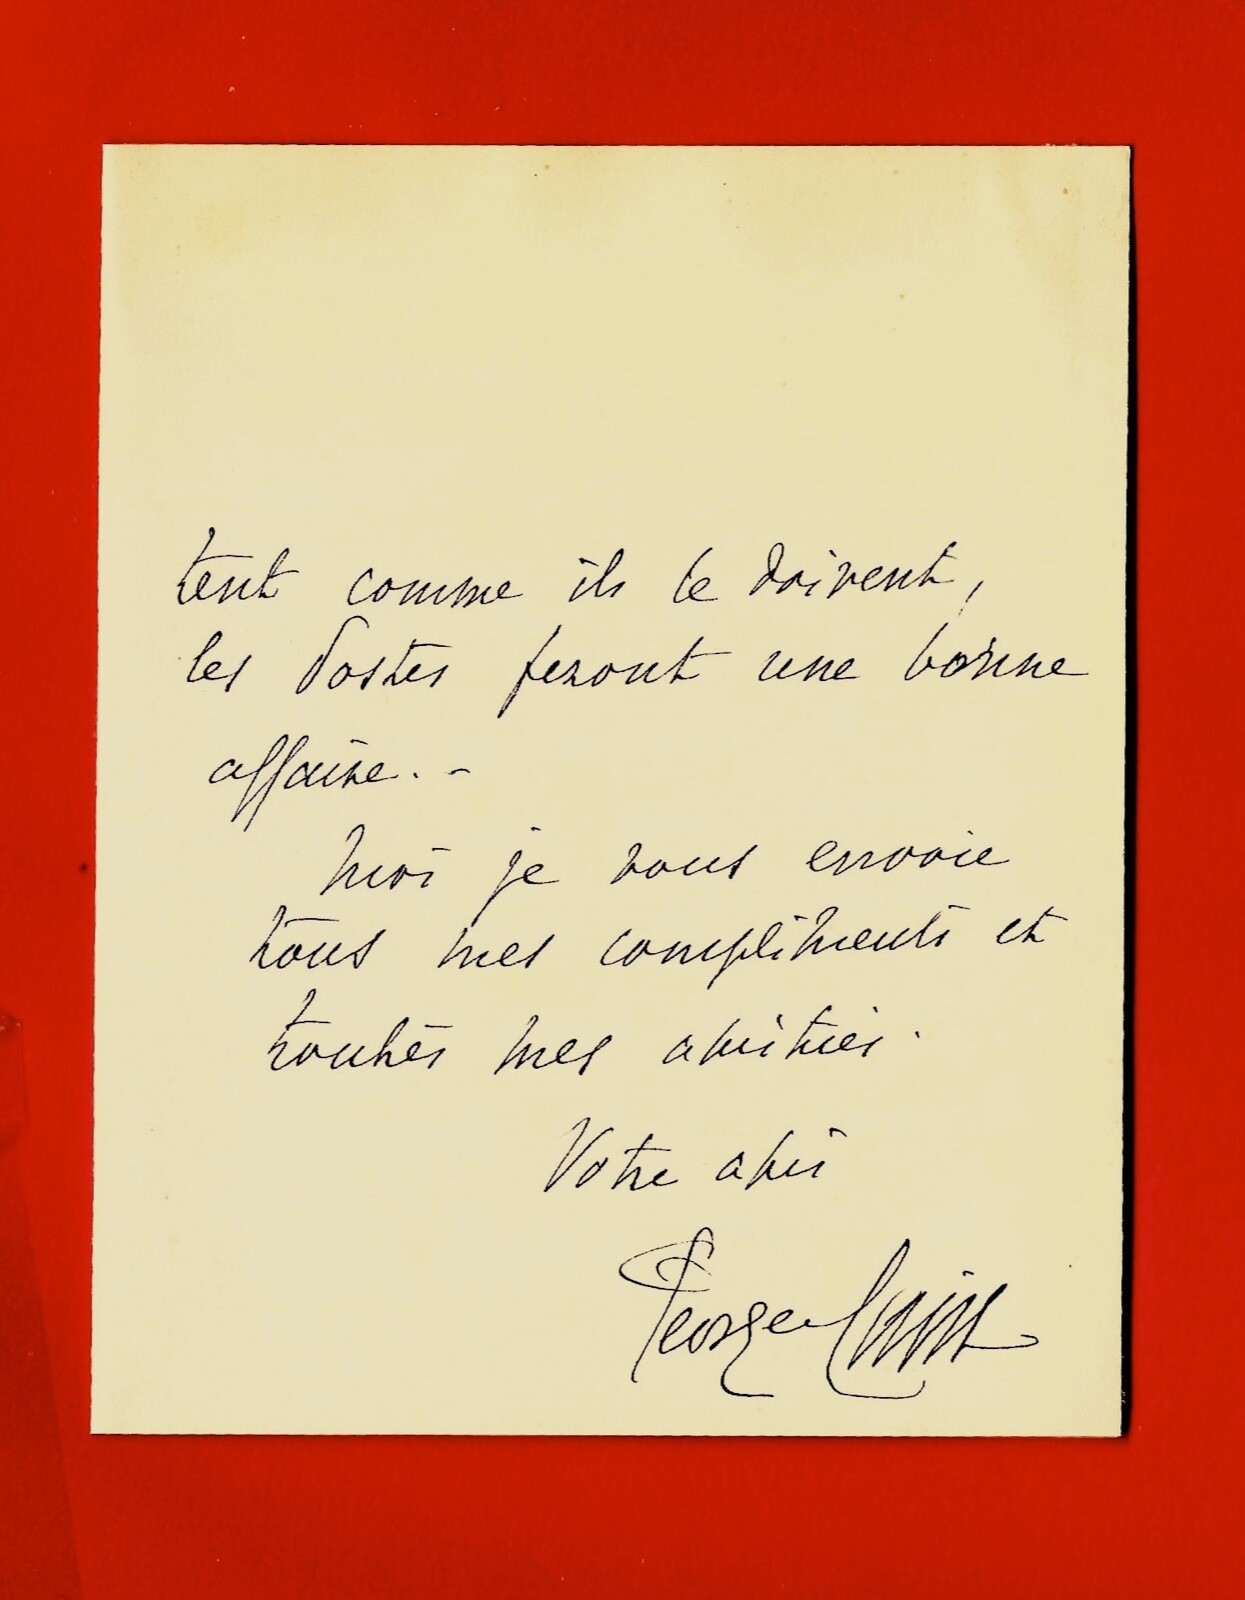 tent comme ils le doivent,
les Postes feront une bonne
affaire. -
Moi je vous envoie
tous mes compliments et
toutes mes amitiés.
Votre ami
Georges Cain